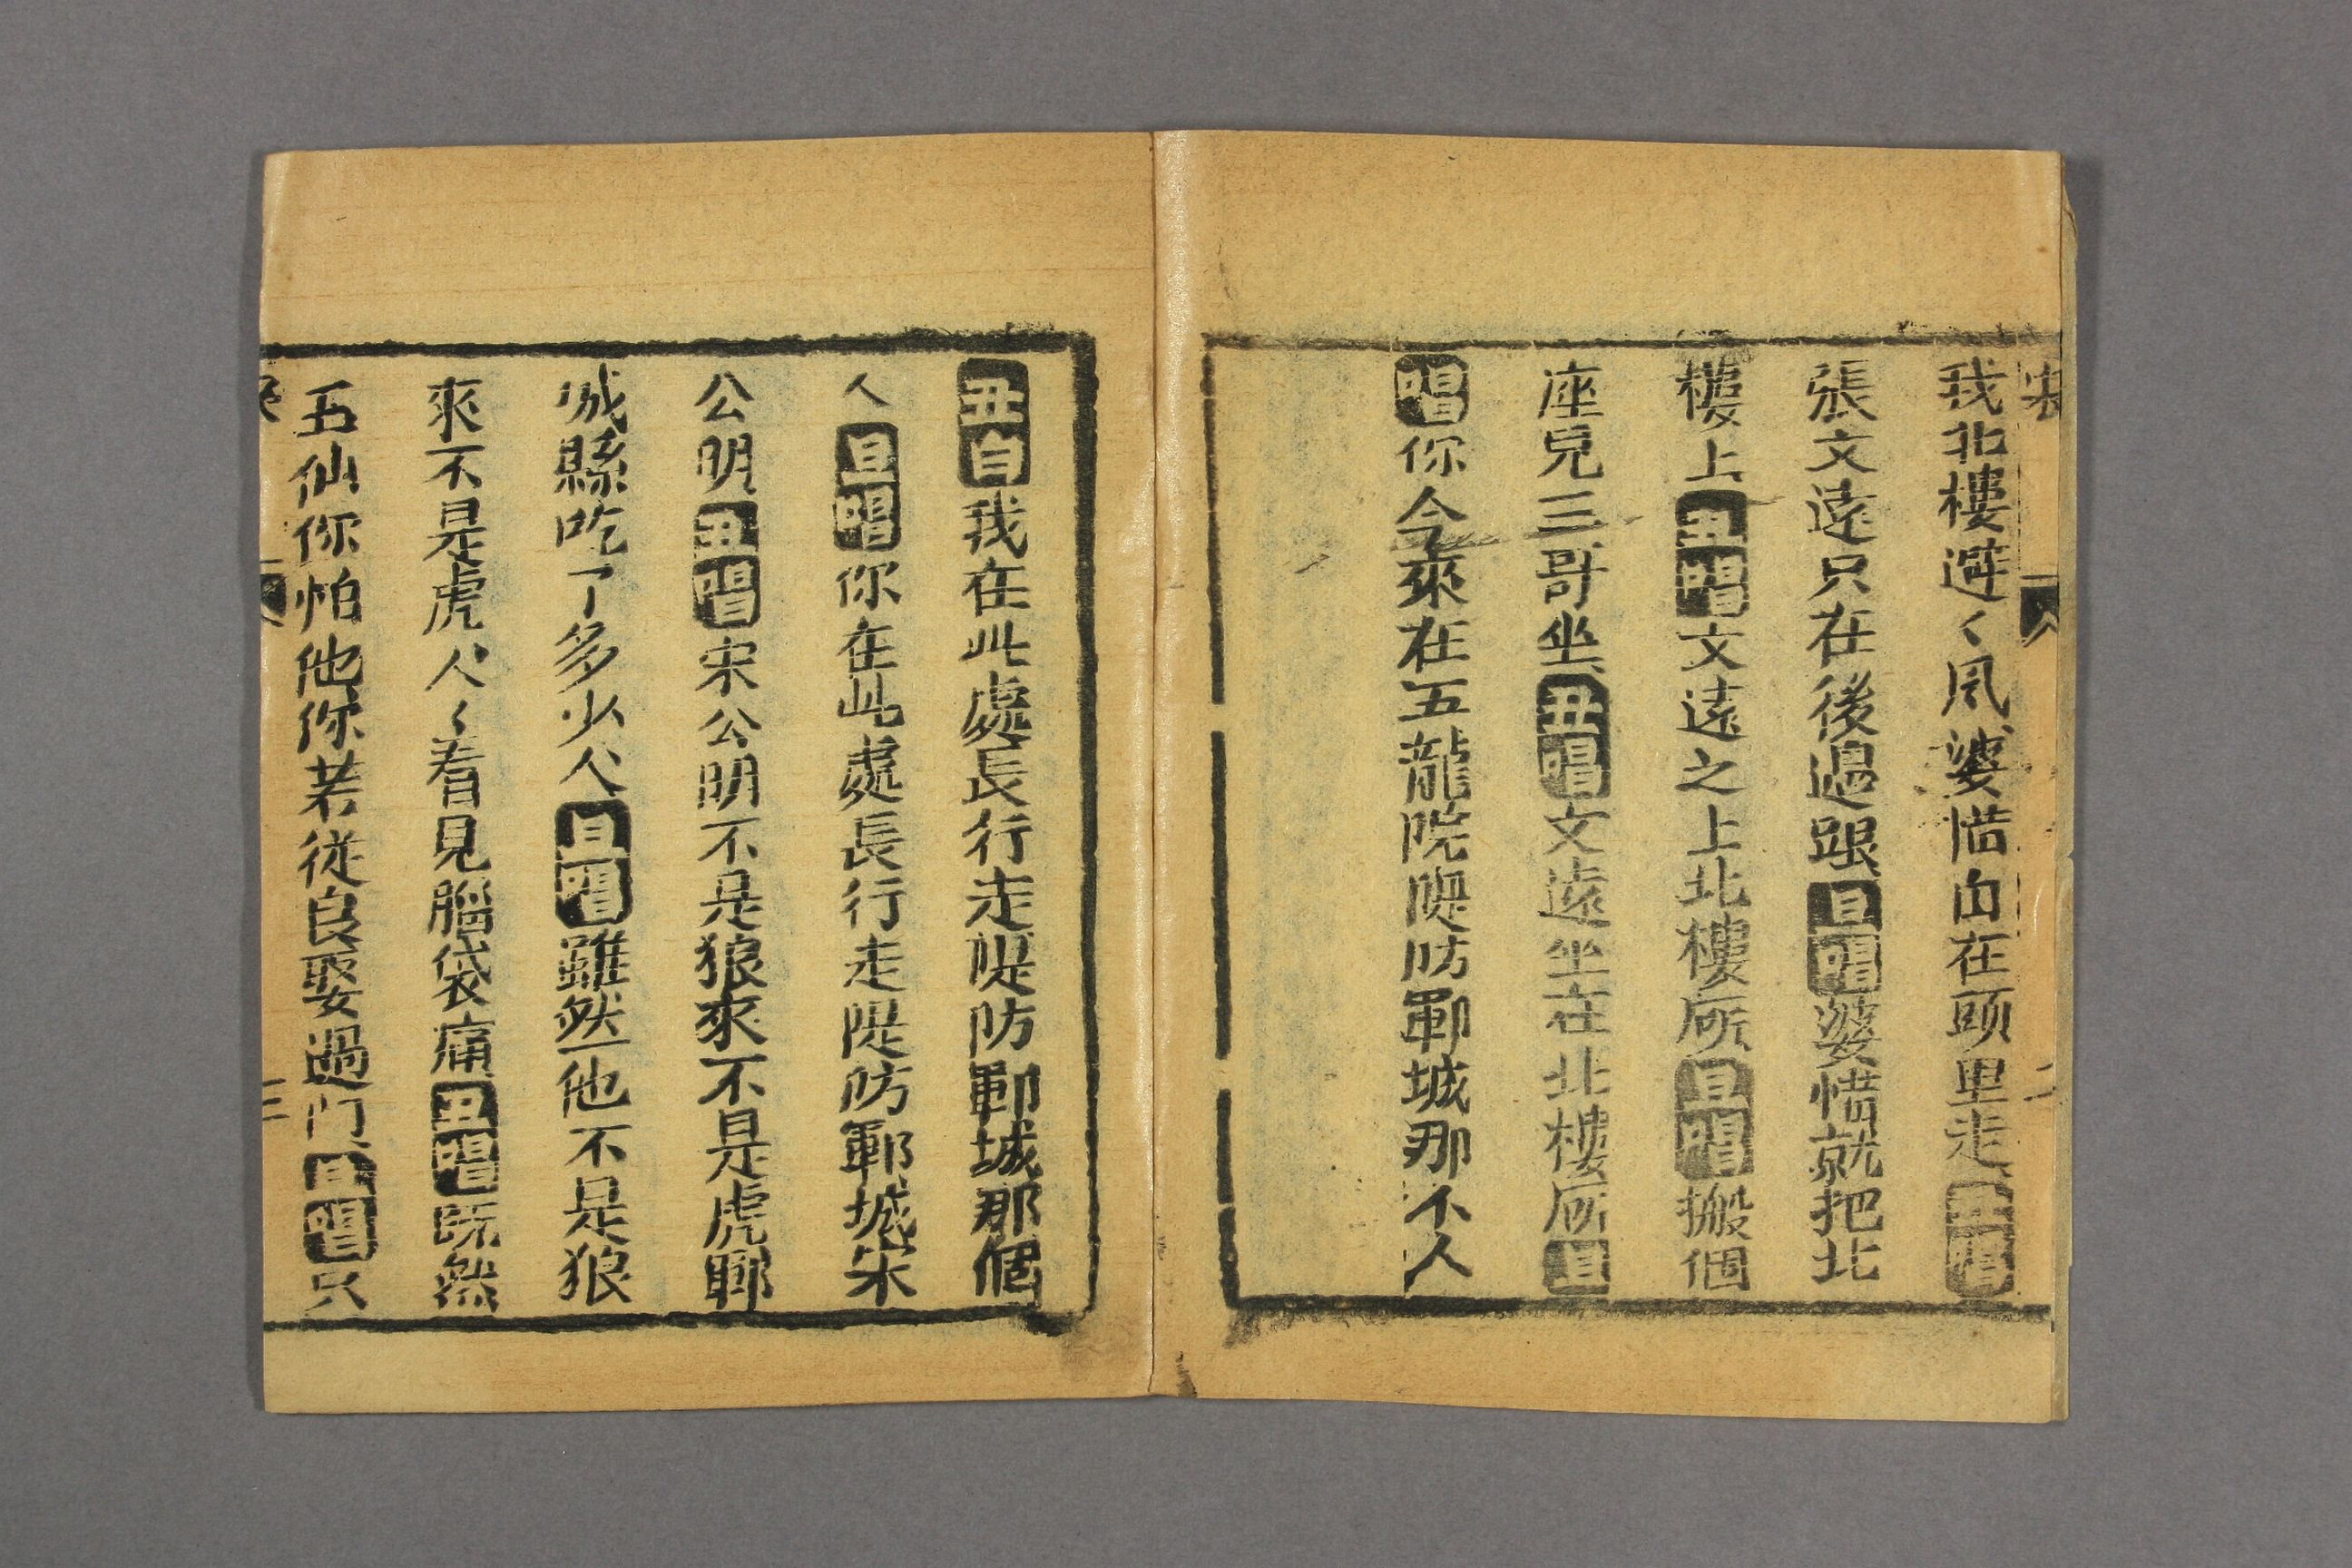 我北樓避〻風婆惜由在頭里走丑唱
張文遠只在後邊跟旦唱婆惜就把北
樓上丑唱文遠之上北樓所旦唱搬個
座兒三哥坐丑唱文遠坐在北樓所旦
唱你今來在五龍院隄防鄆城那个人
丑白我在此處長行走隄防鄆城那個
人旦唱你在此處長行走隄防鄆城宋
公明丑唱宋公明不是狼來不是虎鄆
城縣吃了多少人旦唱雖然他不是狼
來不是虎人〻看見腦袋痛丑唱既然
五仙你怕他你若從良娶過門旦唱只
三